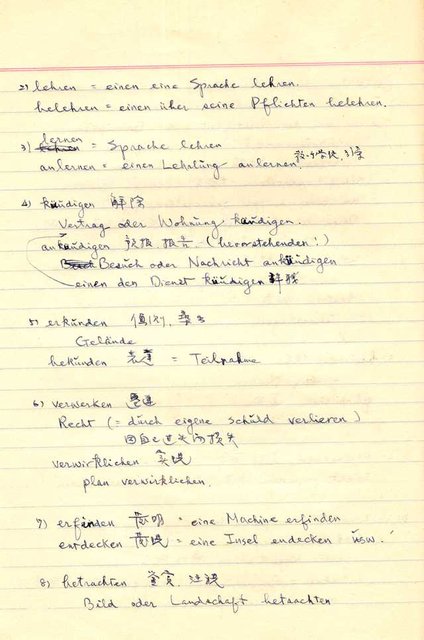 2) lehren = einen eine Sprache lehren.
belehren = einen über seine Pflichten belehren.
3) lernen = Sprache lehren
anlernen = einen Lehrling anlernen.
4) kündigen 解除
Vertrag oder Wohnung kündigen.
ankündigen 預报 报告. (bevorstehenden!)
Besuch oder Nachricht ankündigen
einen den Dienst kündigen 辞我
5) erkunden 偵 探
Gelände
bekunden 表達 = Teilnahme
6) verwerken
Recht (= durch eigene schuld verlieren)
因自己过失而損失
verwirklichen 实现
plan verwirklichen.
7) erfinden 發明 = eine Machine erfinden
entdecken 發现 = eine Insel endecken usw.
8) betrachten
Bild oder Landschaft betrachten